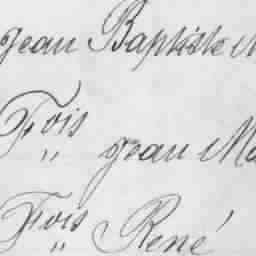 Jean Baptiste M
Fois Jean Ma
Fois René